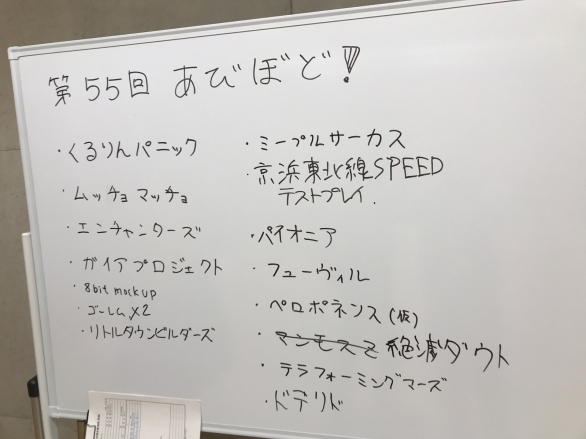 第55回 あびぼど!
・くるりんパニック
・ムッチョマッチョ
・エンチャンターズ
・ガイアプロジェクト
・8bit mockup
・ゴーレム×2
・リトルタウンビルダーズ
・ミープルサーカス
・京浜東北線SPEED
テストプレイ.
・パイオニア
・フューヴィル
・ペロポネンス(仮)
・マンモスと 絶滅ダウト
・テラフォーミングマーズ
・ドデリド